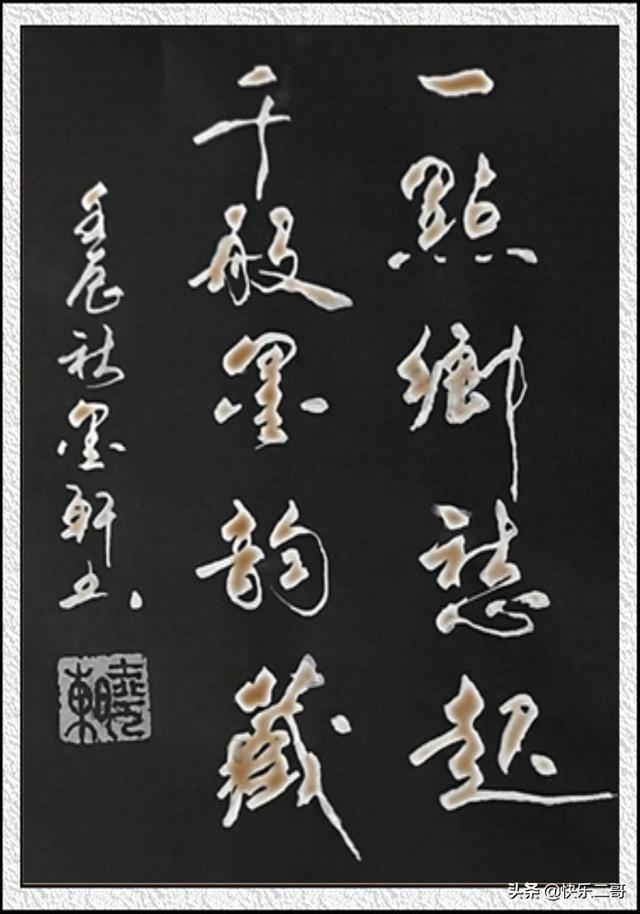 一點鄉愁起
千般墨韵藏
壬辰秋墨軒书
曉東
头条 @快乐二哥